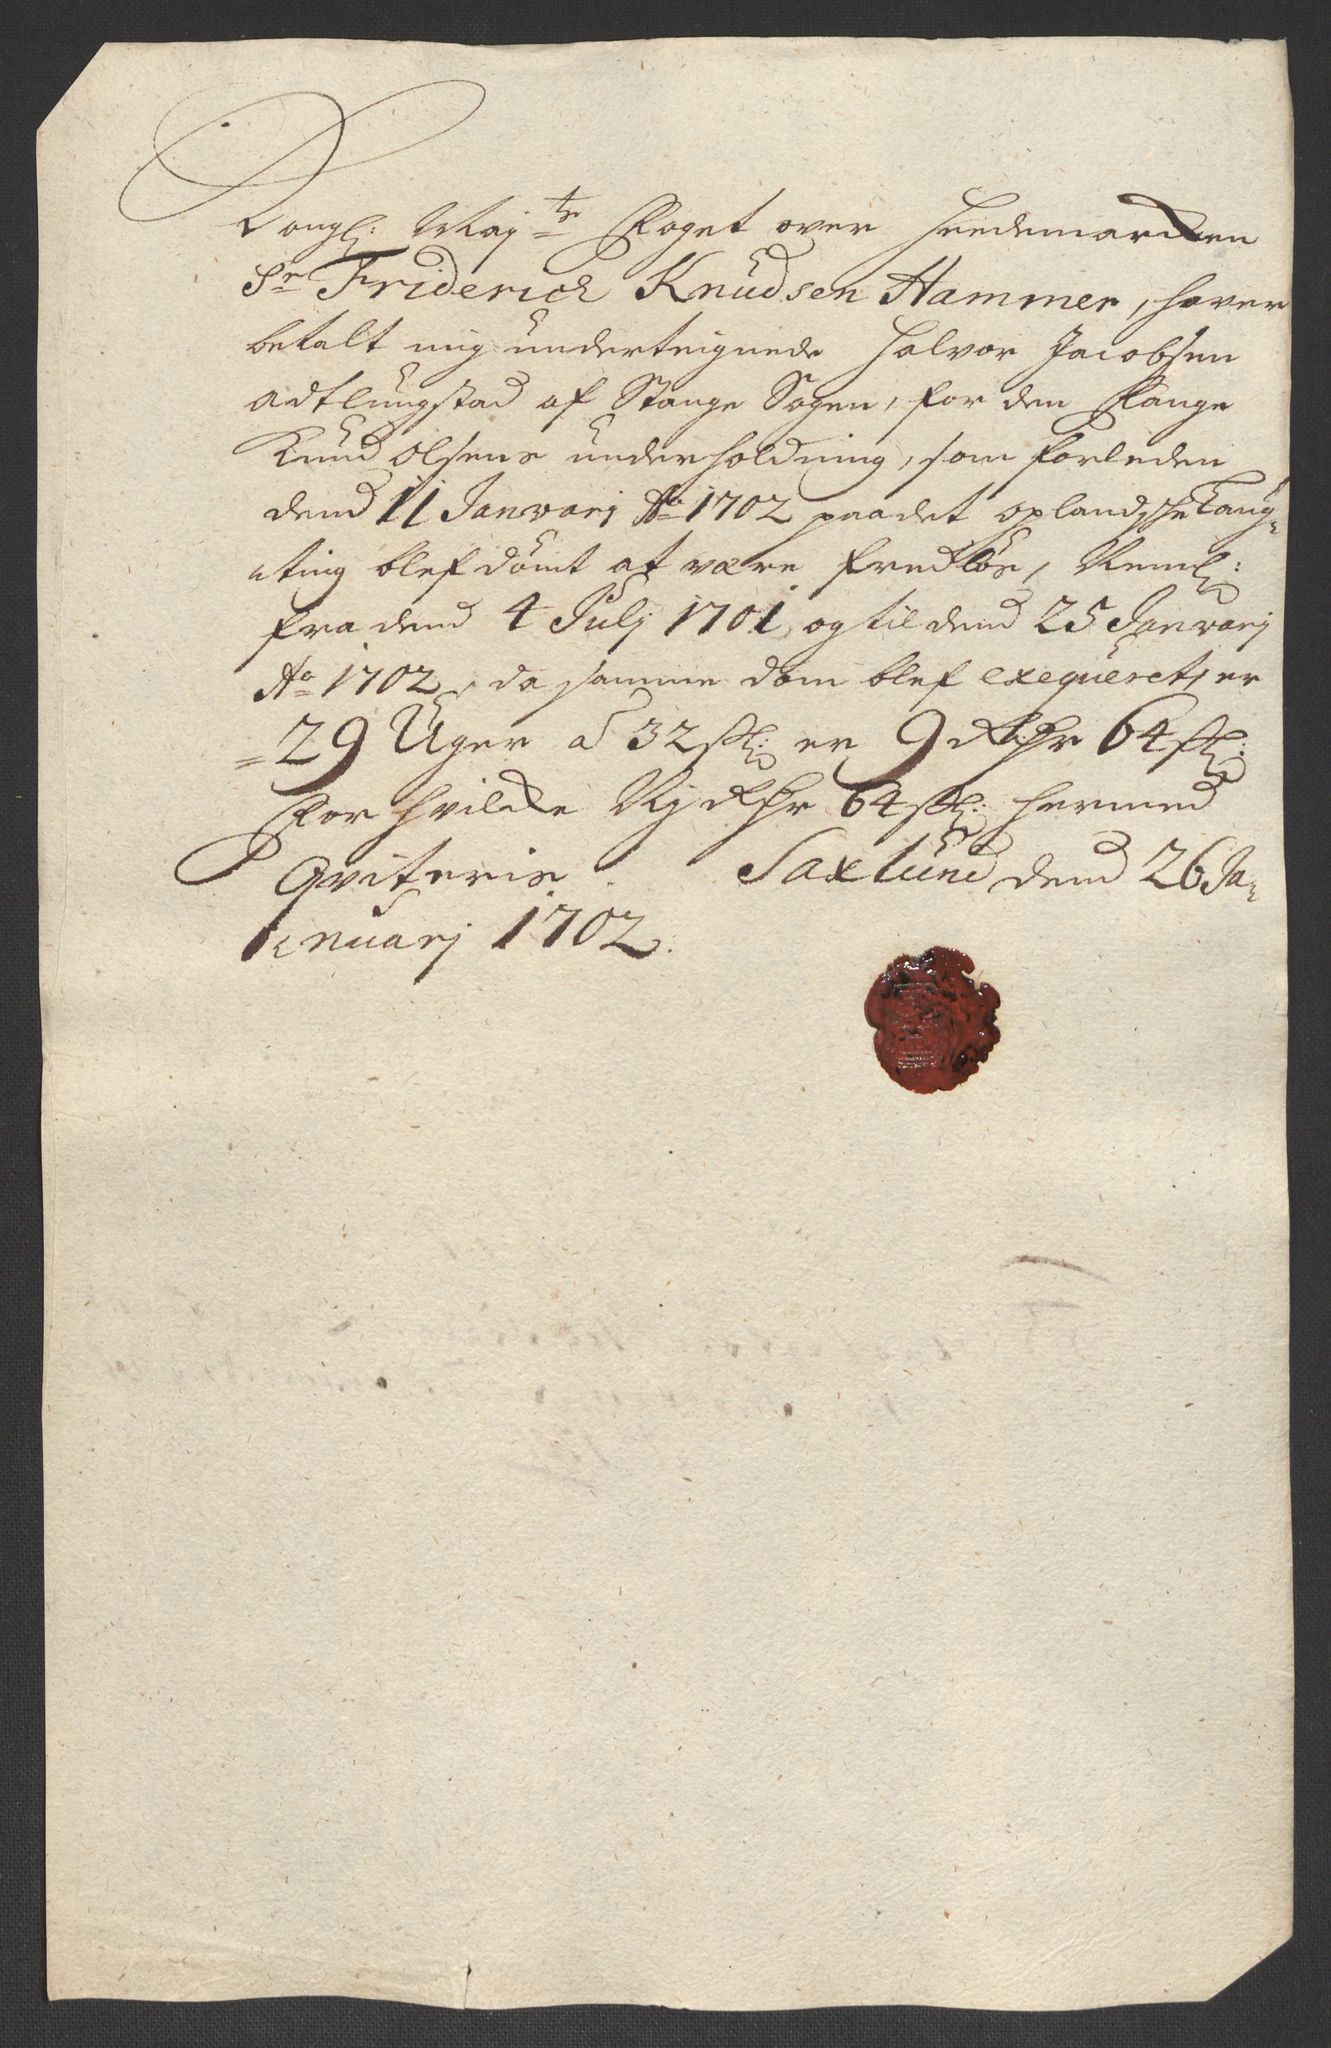 Kongl: Maj:ts Foget over Heedemarcken
Sr Friderich Knudsen Hammer, hafver
betalt mig underteignede Halvor Jacobsen
Atlungstad af Stange Sogen, for den Fange
Knud Olsens underholdning, som forleden
dend 11 Janvarj Ao 1702 paa det oplandsche Laug-
ting blef dömt at være fredlös, Neml:
fra dend 4 Julj 1701, og til dend 25 Janvarj
Ao 1702, da samme dom blef exequeret, er
29 Uger a 32 ſſ: er 9 Rdhr 64 ſſ:
For hvilcke Nj Rdhr 64 ſſ: hermed
Qviteris. Saxlund dend 26 Ja-
nuarj 1702.